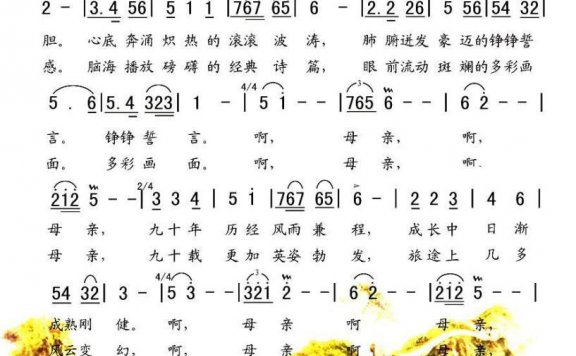 2 - | 3. 4 56 | 5 1 1 1 | 767 65 | 6 - | 2. 2 26 | 5 5 56 | 54 32 |
胆。 心底 奔涌 炽 热 的 滚滚 波 涛， 肺 腑迸发 豪 迈 的 铮铮 誓
感。 脑海 播放 磅 礴 的 经典 诗 篇， 眼 前流动 斑 斓 的 多彩 画
5 . 6 | 5. 4 323 | 1 - | 4/4 1 5 i - | 765 6 - - | 6 2 - - |
言。 铮铮 誓 言。 啊， 母 亲， 啊，
面。 多彩 画 面。 啊， 母 亲， 啊，
212 5 - - | 2/4 3 3 4 | 5 1 | 767 65 | 6 - | 2 2 3 | 4 6 |
母 亲， 九 十 年 历 经 风雨 兼 程， 成 长 中 日 渐
母 亲， 九 十 载 更 加 英姿 勃 发， 旅 途 上 几 多
54 32 | 3 - | 4/4 1 5 3 - | 321 2 - - | 6 2 - - | 212 5 - - |
成熟刚 健。 啊， 母 亲 啊 母 亲，
风云变 幻， 啊， 母 亲 啊 母 亲，